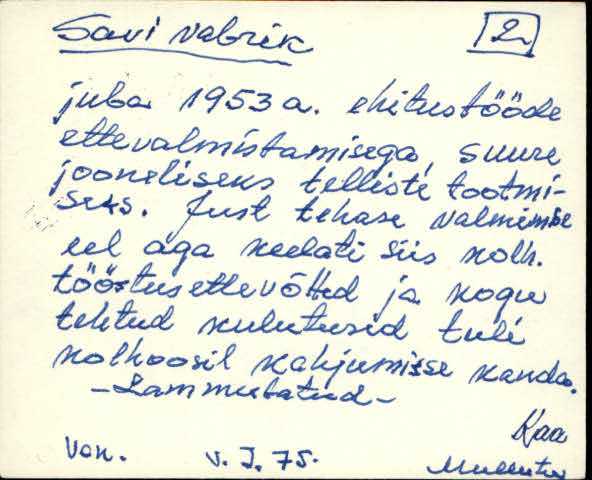 Savi vabrik 2
juba 1953 a. ehitustööde
ettevalmistamisega, suure
jooneliseks telliste tootmi-
seks. Just tehase valmimise
eel aga keelati siis kolh.
tööstusettevõtted ja kogu
tehtud kulutusid tuli
kolhoosil kahjumisse kanda.
-Lammutatud-
Kaa
Von. V. I. 75.